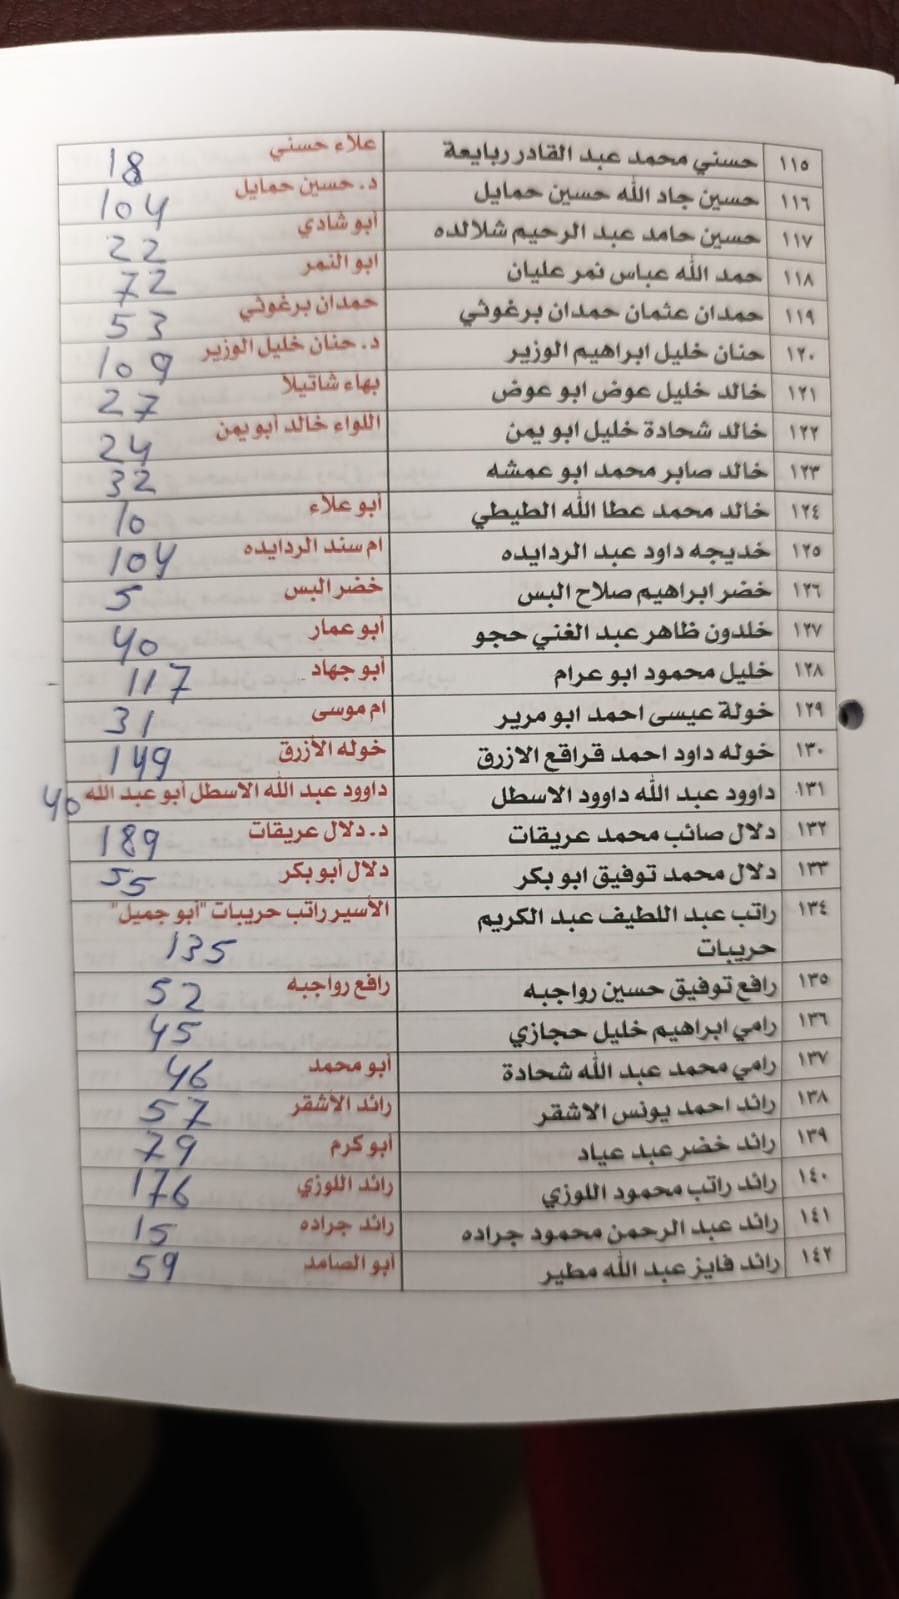 ١١٥ حسني محمد عبد القادر ربايعة علاء حسني 18
١١٦ حسين جاد الله حسين حمايل د. حسين حمايل 104
١١٧ حسين حامد عبد الرحيم شلالده أبو شادي 22
١١٨ حمد الله عباس نمر عليان ابو النمر 72
١١٩ حمدان عثمان حمدان برغوثي حمدان برغوثي 53
١٢٠ حنان خليل ابراهيم الوزير د. حنان خليل الوزير 109
١٢١ خالد خليل عوض ابو عوض بهاء شاتيلا 27
١٢٢ خالد شحادة خليل ابو يمن اللواء خالد أبو يمن 24
١٢٣ خالد صابر محمد ابو عمشه 32
١٢٤ خالد محمد عطا الله الطيطي أبو علاء 10
١٢٥ خديجه داود عبد الردايده ام سند الردايده 104
١٢٦ خضر ابراهيم صلاح البس خضر البس 5
١٢٧ خلدون ظاهر عبد الغني حجو أبو عمار 40
١٢٨ خليل محمود ابو عرام أبو جهاد 117
١٢٩ خولة عيسى احمد ابو مرير ام موسى 31
١٣٠ خوله داود احمد قراقع الازرق خوله الأزرق 149
١٣١ داوود عبد الله داوود الاسطل داوود عبد الله الاسطل أبو عبد الله 40
١٣٢ دلال صائب محمد عريقات د. دلال عريقات 189
١٣٣ دلال محمد توفيق ابو بكر دلال أبو بكر 55
١٣٤ راتب عبد اللطيف عبد الكريم الأسير راتب حريبات "أبو جميل"
حريبات 135
١٣٥ رافع توفيق حسين رواجبه رافع رواجبه 52
١٣٦ رامي ابراهيم خليل حجازي 45
١٣٧ رامي محمد عبد الله شحادة أبو محمد 46
١٣٨ رائد احمد يونس الاشقر رائد الأشقر 57
١٣٩ رائد خضر عبد عياد أبو كرم 79
١٤٠ رائد راتب محمود اللوزي رائد اللوزي 176
١٤١ رائد عبد الرحمن محمود جراده رائد جراده 15
١٤٢ رائد فايز عبد الله مطير أبو الصامد 59